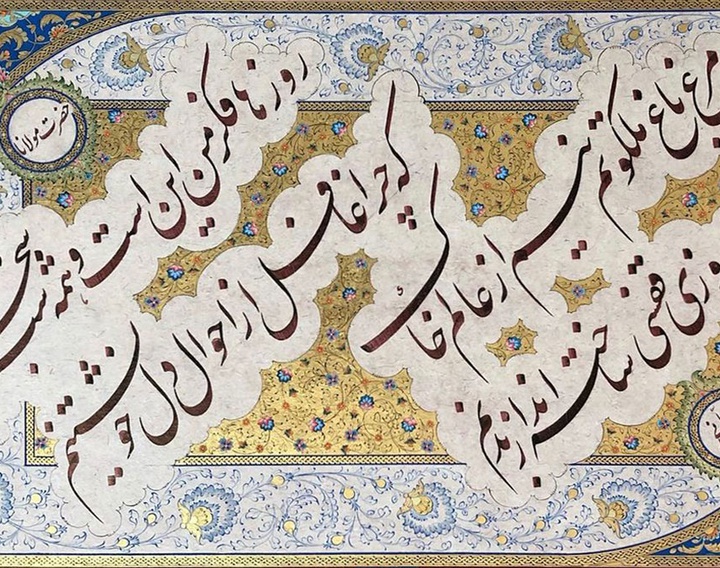 مرغ باغ ملکوتم نیم از عالم خاک
روزی قفسی ساخته اند از بدنم
روزها فکر من این است و همه شب
که چرا غافل از احوال دل خویشتنم
حضرت مولانا